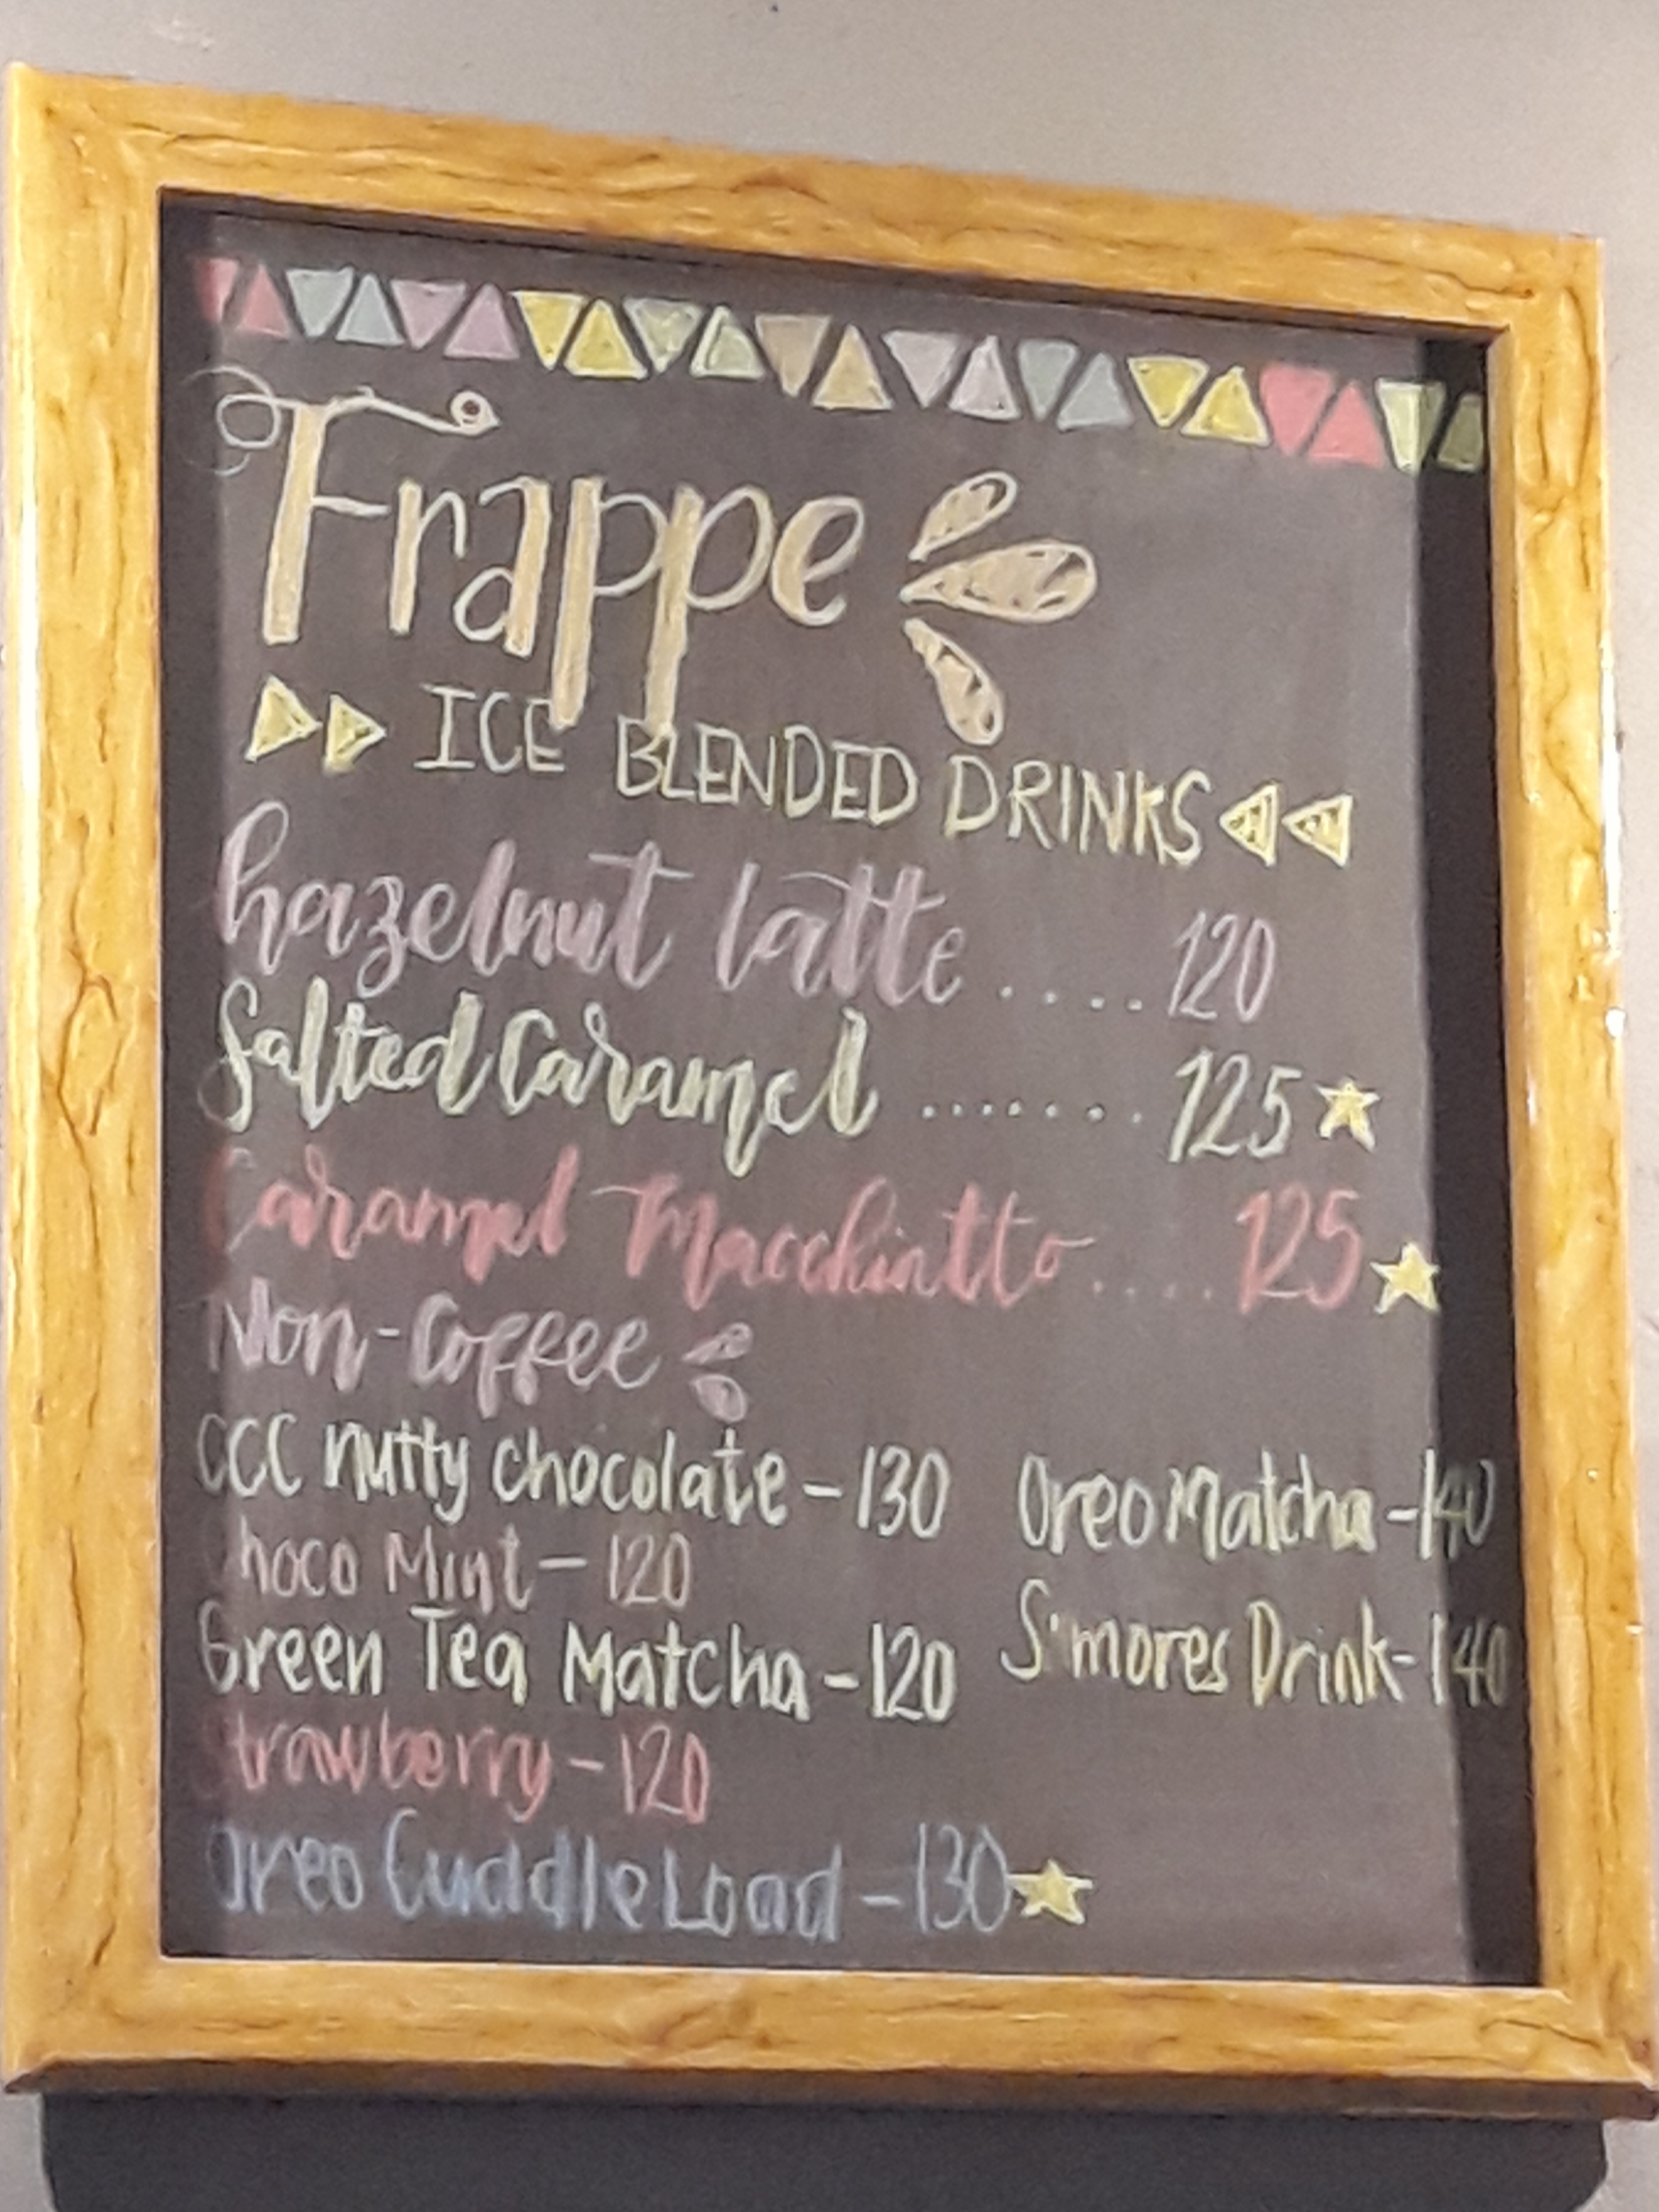 Frappe
ICE BLENDED DRINKS
hazelnut latte .... 120
Salted Caramel ....... 125
Caramel Macchiatto .... 125
Non-Coffee
CCC nutty chocolate - 130
Choco Mint - 120
Green Tea Matcha - 120
Strawberry - 120
Oreo Cuddle Load - 130
Oreo Matcha - 140
S'mores Drink - 140